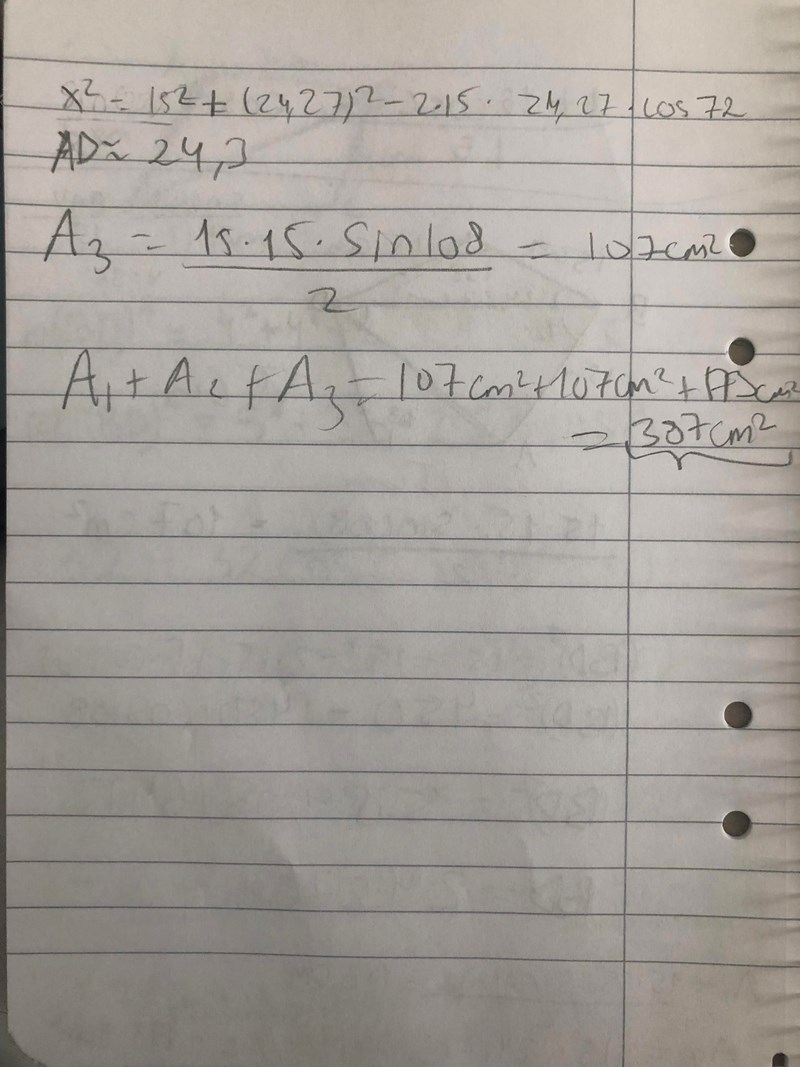 x² = 15² + (24,27)² - 2·15· 24,27 · cos 72
AD ≈ 24,3
A₃ = 15·15·sin108 / 2 = 107cm²
A₁ + A₂ + A₃ = 107cm² + 107cm² + 173cm²
= 387cm²